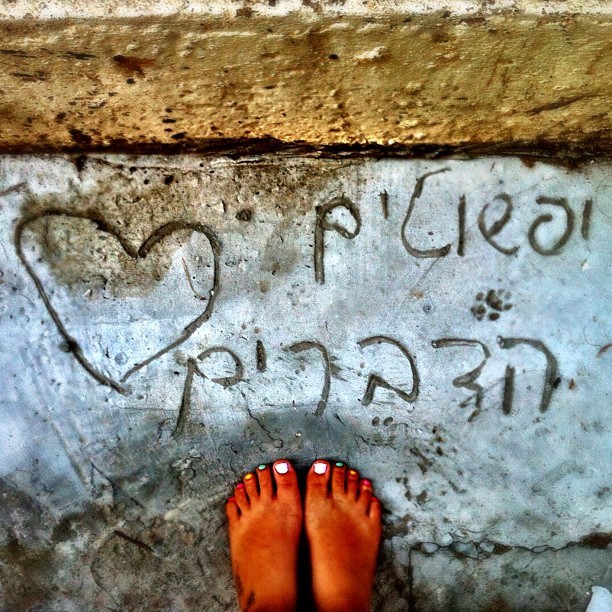 ופשוטים
הדברים